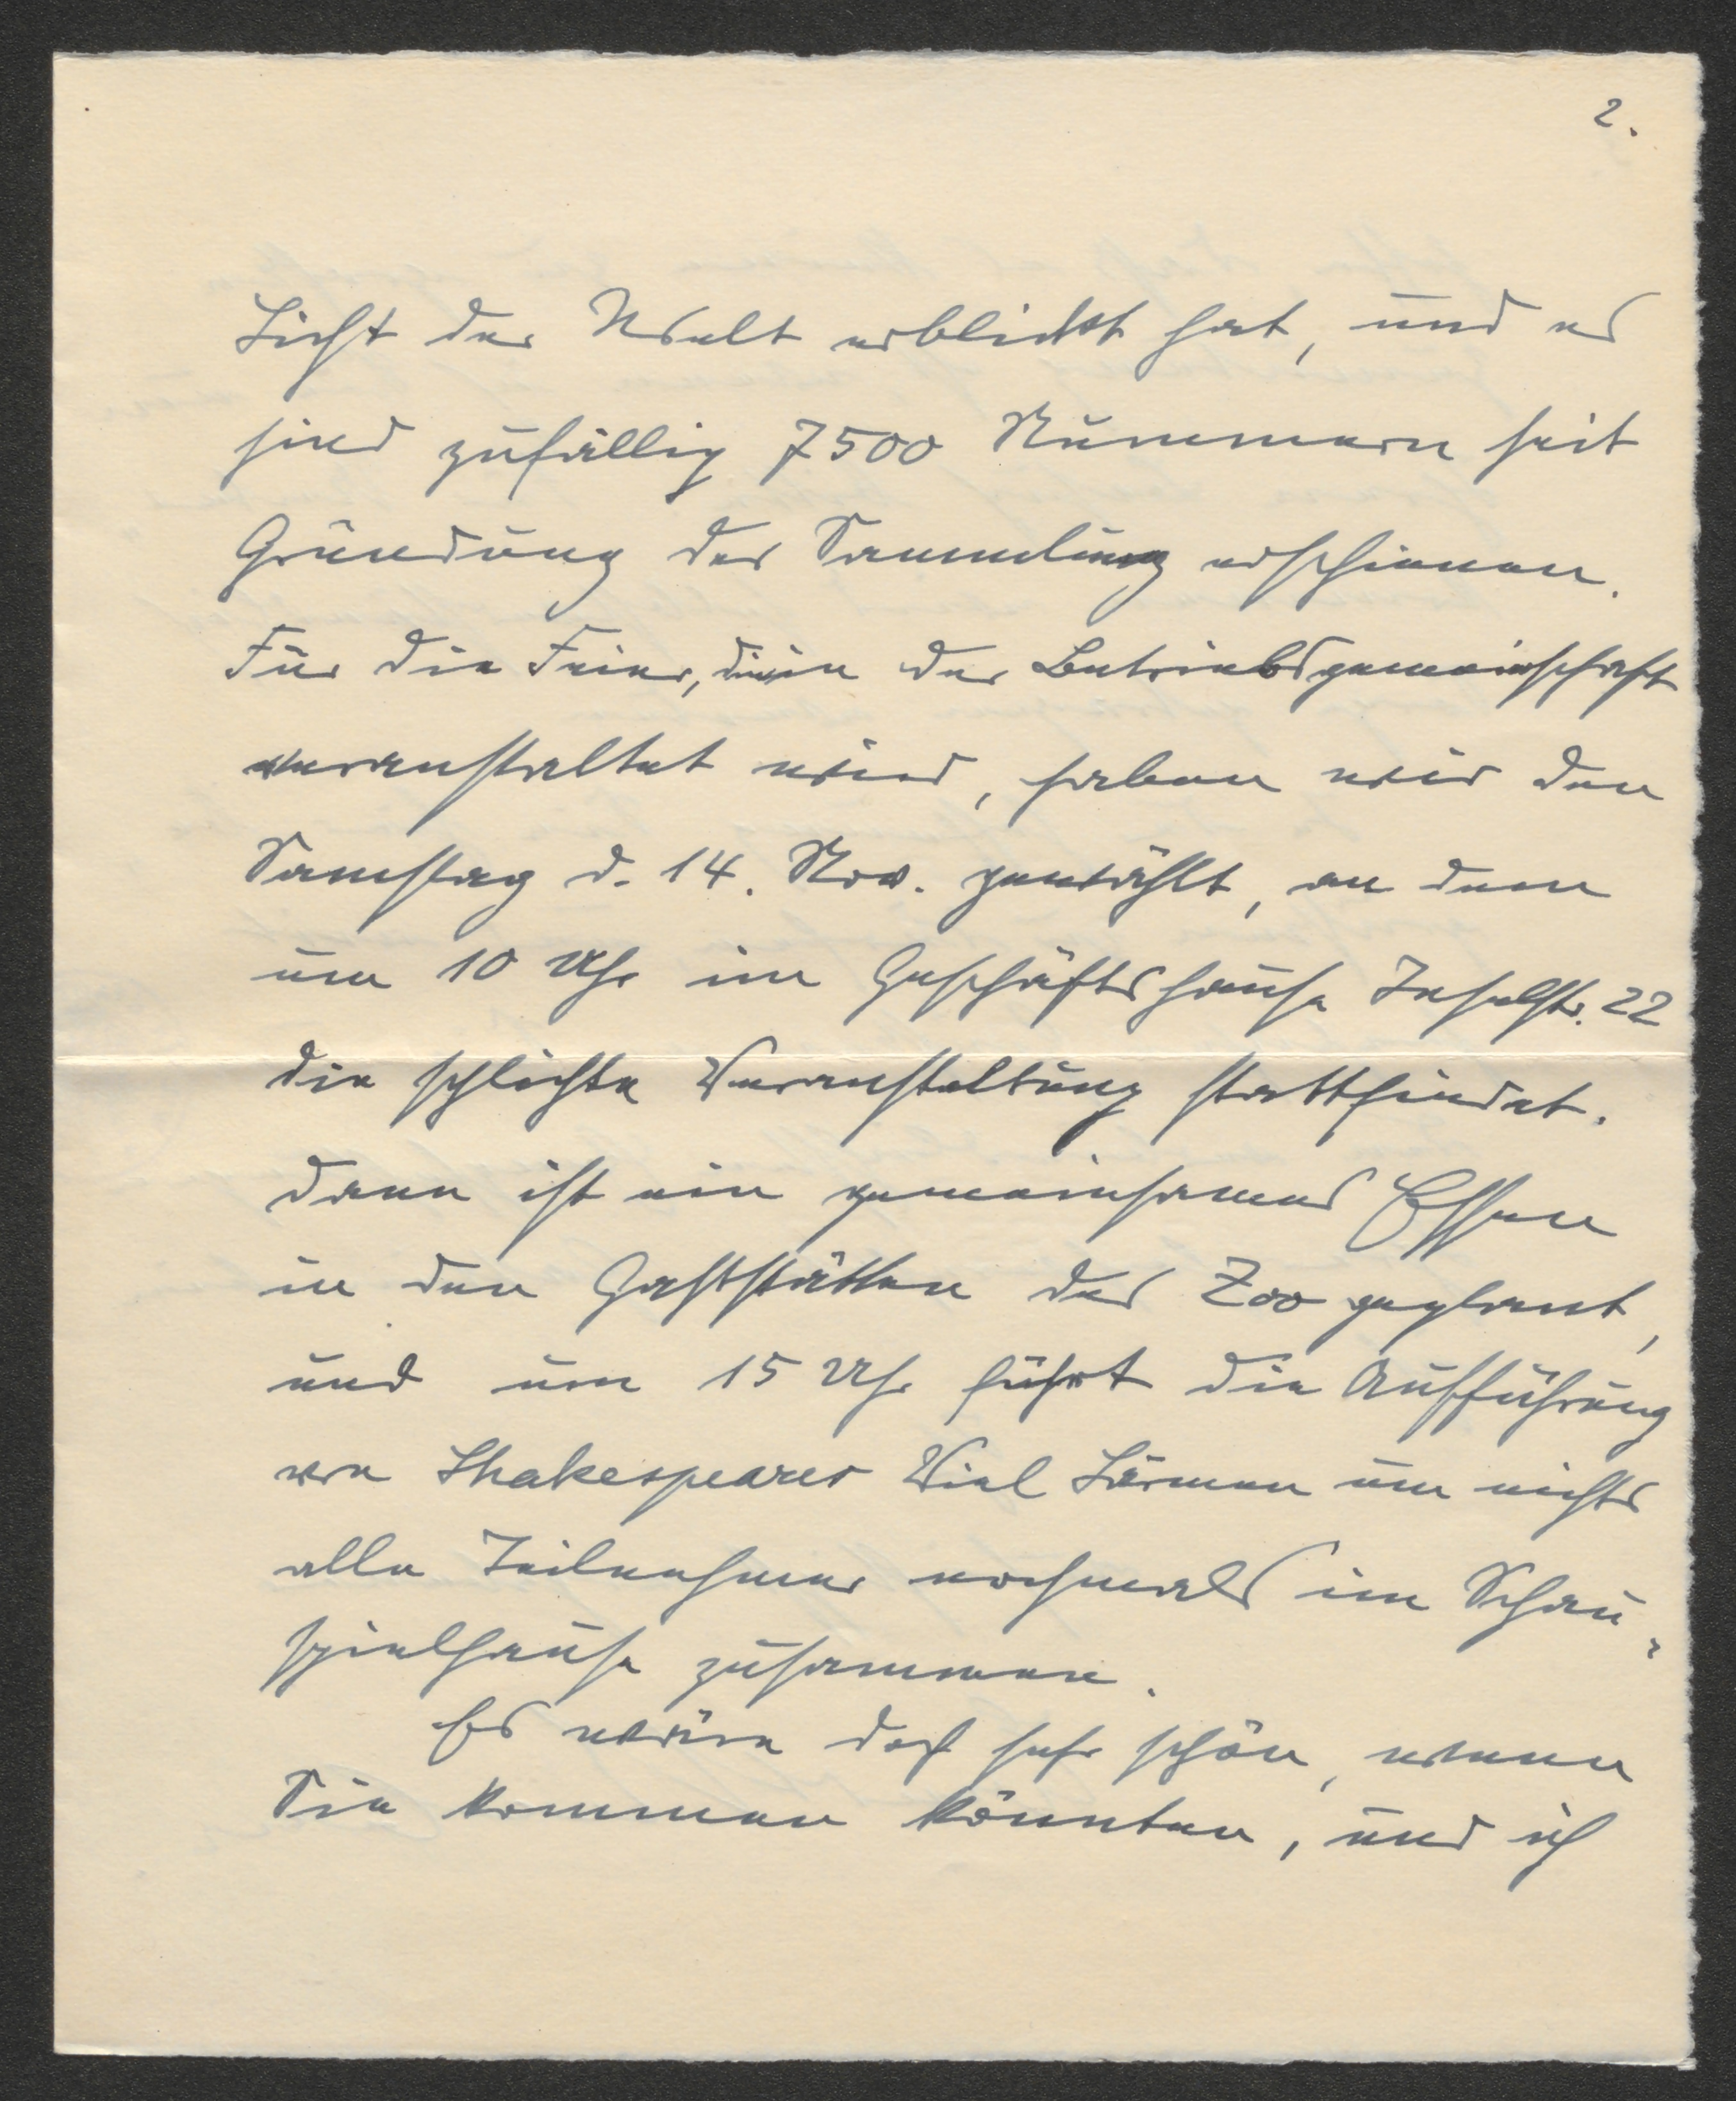 2.
Licht der Welt erblickt hat, und es
sind zufällig 7500 Nummern seit
Gründung der Sammlung erschienen.
Für die Feier, die in der Betriebsgemeinschaft
veranstaltet wird, haben wir den
Samstag d. 14. Nov. gewählt, an dem
um 10 Uhr im Geschäftshause Inselstr. 22
die schlichte Veranstaltung stattfindet.
Dann ist ein gemeinsames Essen
in den Gaststätten des Zoo geplant,
und um 15 Uhr führt die Aufführung
von Shakespeares Viel Lärmen um nichts
alle Teilnehmer nochmals im Schau-
spielhause zusammen.
Es wäre doch sehr schön, wenn
Sie kommen könnten, und ich